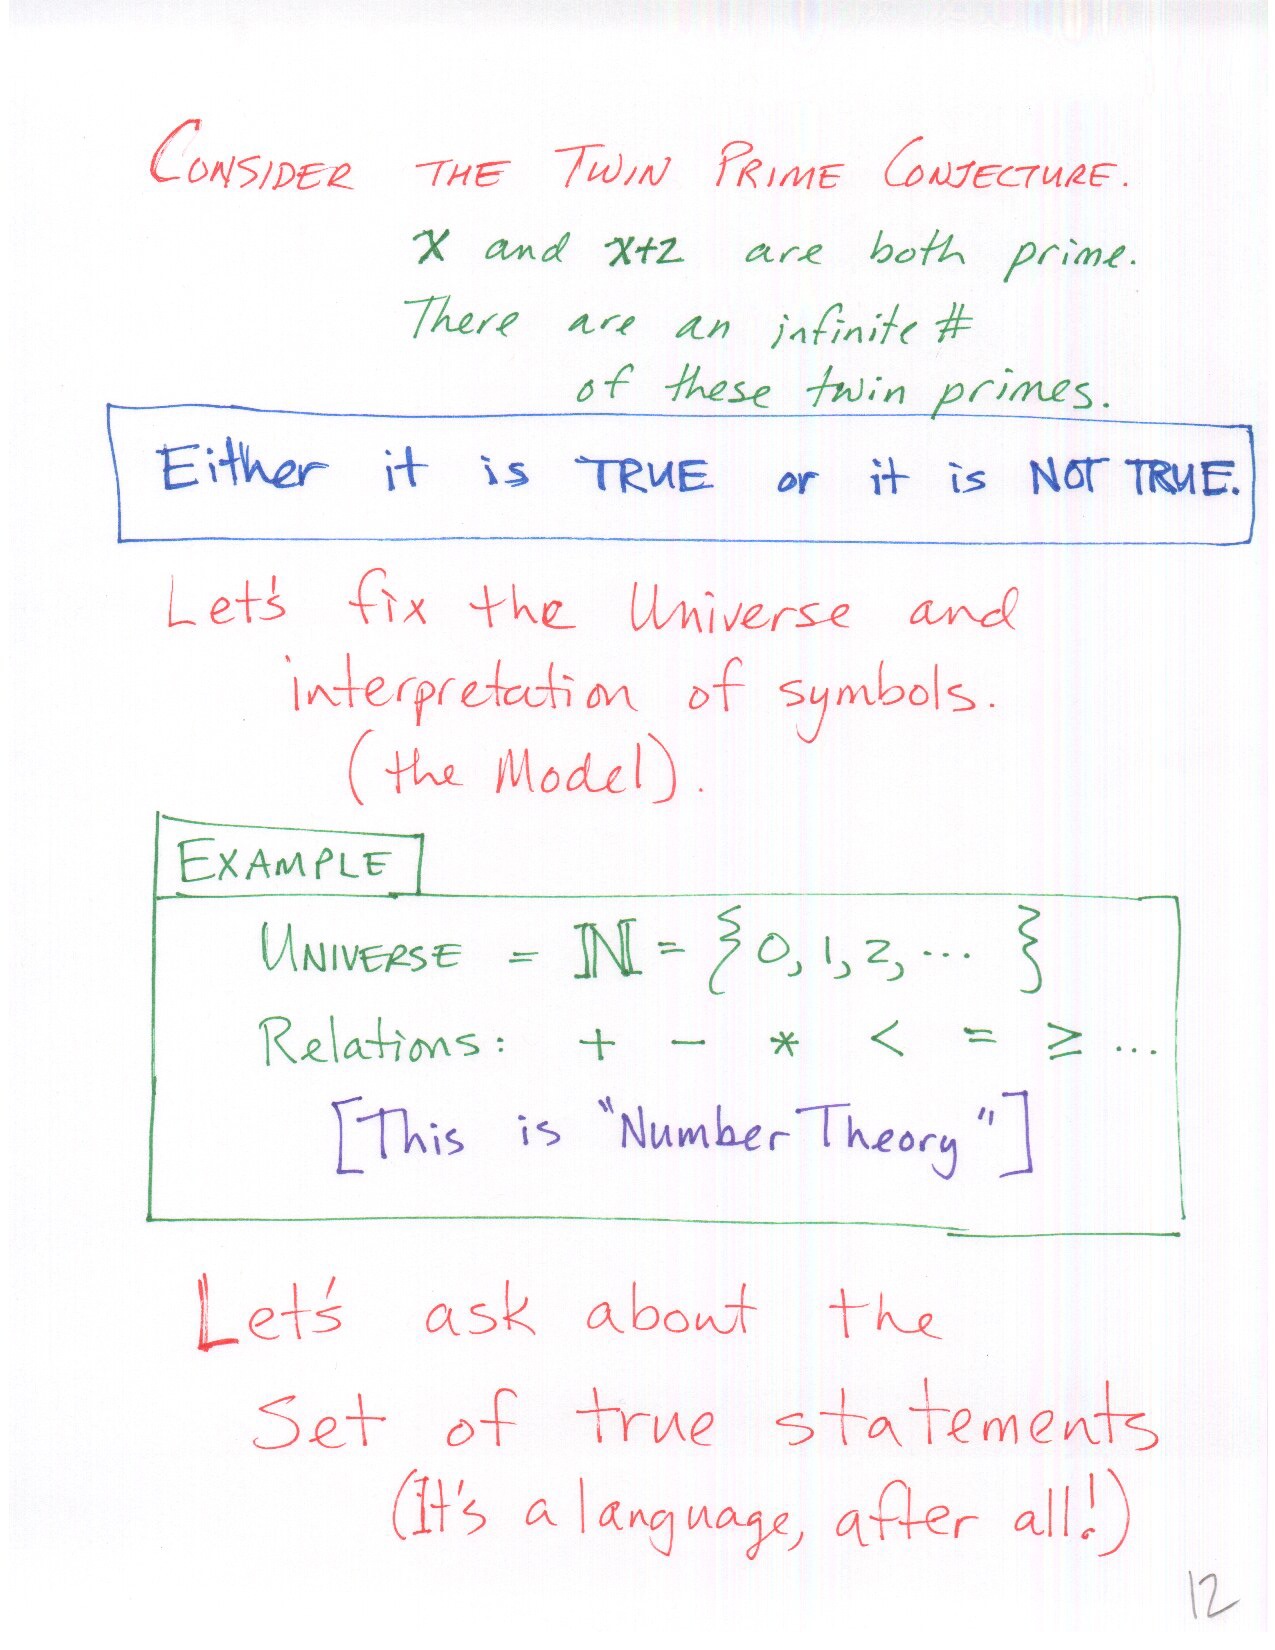 CONSIDER THE TWIN PRIME CONJECTURE.
x and x+2 are both prime.
There are an infinite #
of these twin primes.
Either it is TRUE or it is NOT TRUE.
Let's fix the Universe and
interpretation of symbols.
(the Model).
EXAMPLE
UNIVERSE = ℕ = {0, 1, 2, ... }
Relations: + - * < = ≥ ...
[This is "Number Theory"]
Let's ask about the
Set of true statements
(It's a language, after all!)
12